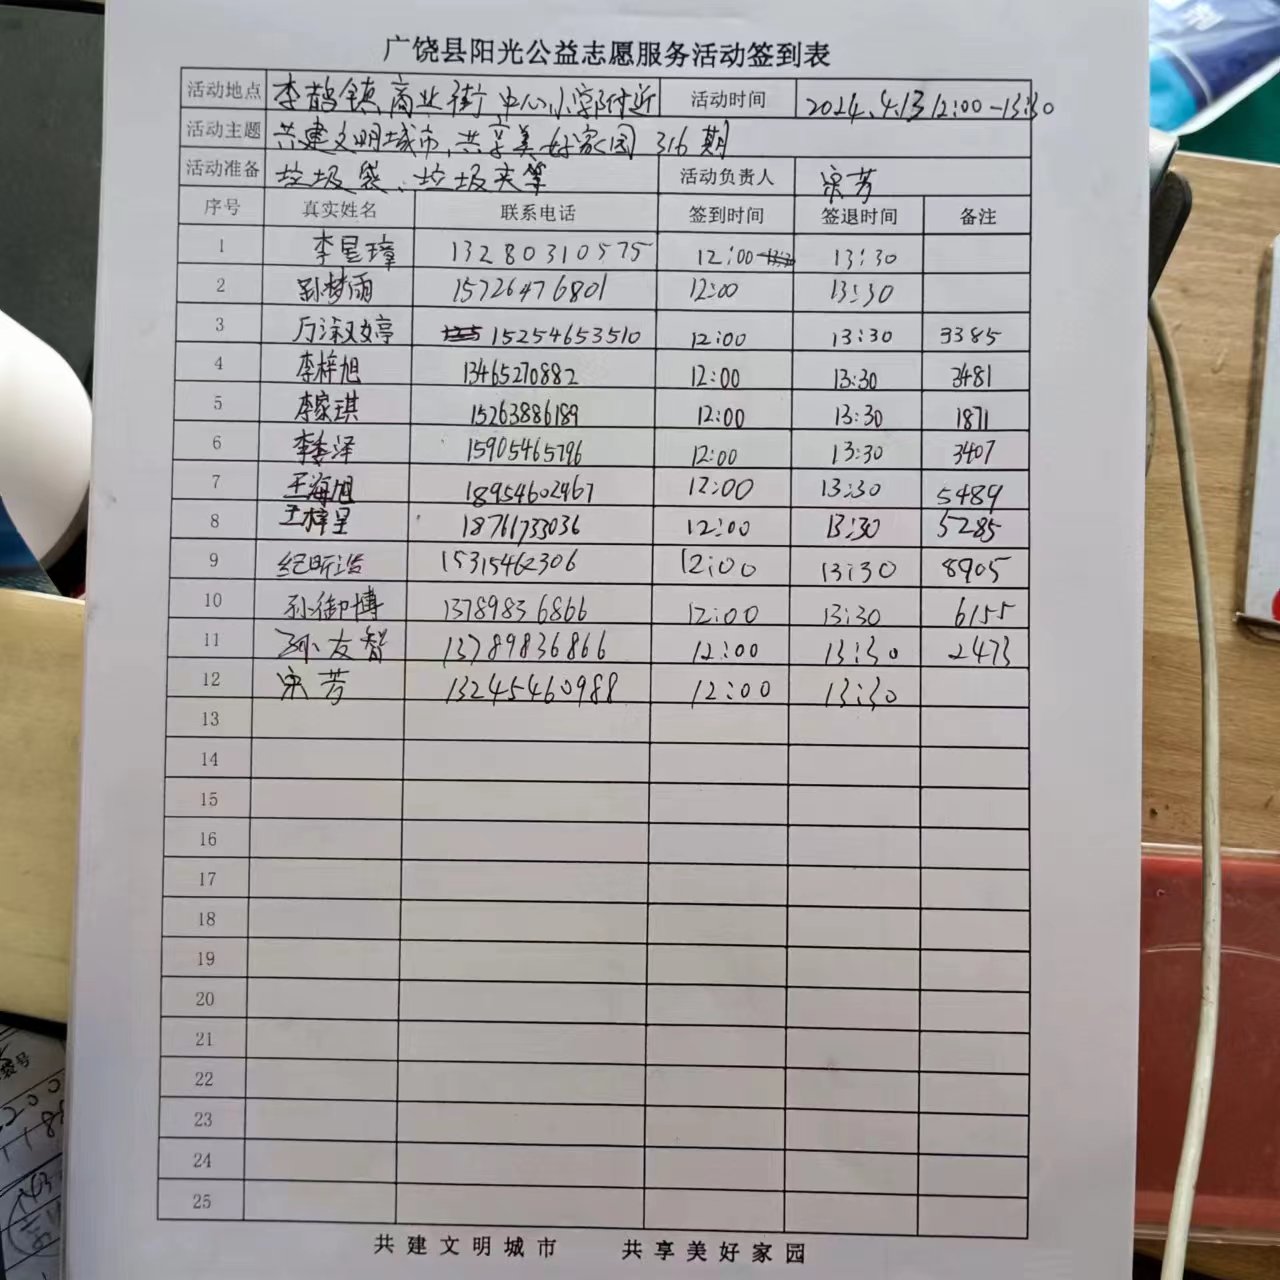 广饶县阳光公益志愿服务活动签到表
活动地点 李鹊镇商业街中心小学附近 活动时间 2024.4.13 12:00-13:30
活动主题 共建文明城市,共享美好家园 316期
活动准备 垃圾袋、垃圾夹等 活动负责人 宋芳
序号 真实姓名 联系电话 签到时间 签退时间 备注
1 李星璋 13280310575 12:00 13:30
2 梦雨 15726476801 12:00 13:30
3 淑婷 15254653510 12:00 13:30 3385
4 李梓旭 13465270882 12:00 13:30 3481
5 李家琪 15263886189 12:00 13:30 1871
6 李泽 15905465796 12:00 13:30 3407
7 王海旭 18954602467 12:00 13:30 5489
8 王梓呈 18761733036 12:00 13:30 5285
9 纪昕 15315462306 12:00 13:30 8905
10 孙御博 13789836866 12:00 13:30 6155
11 孙友智 13789836866 12:00 13:30 2473
12 宋芳 13245460988 12:00 13:30
13
14
15
16
17
18
19
20
21
22
23
24
25
共建文明城市 共享美好家园